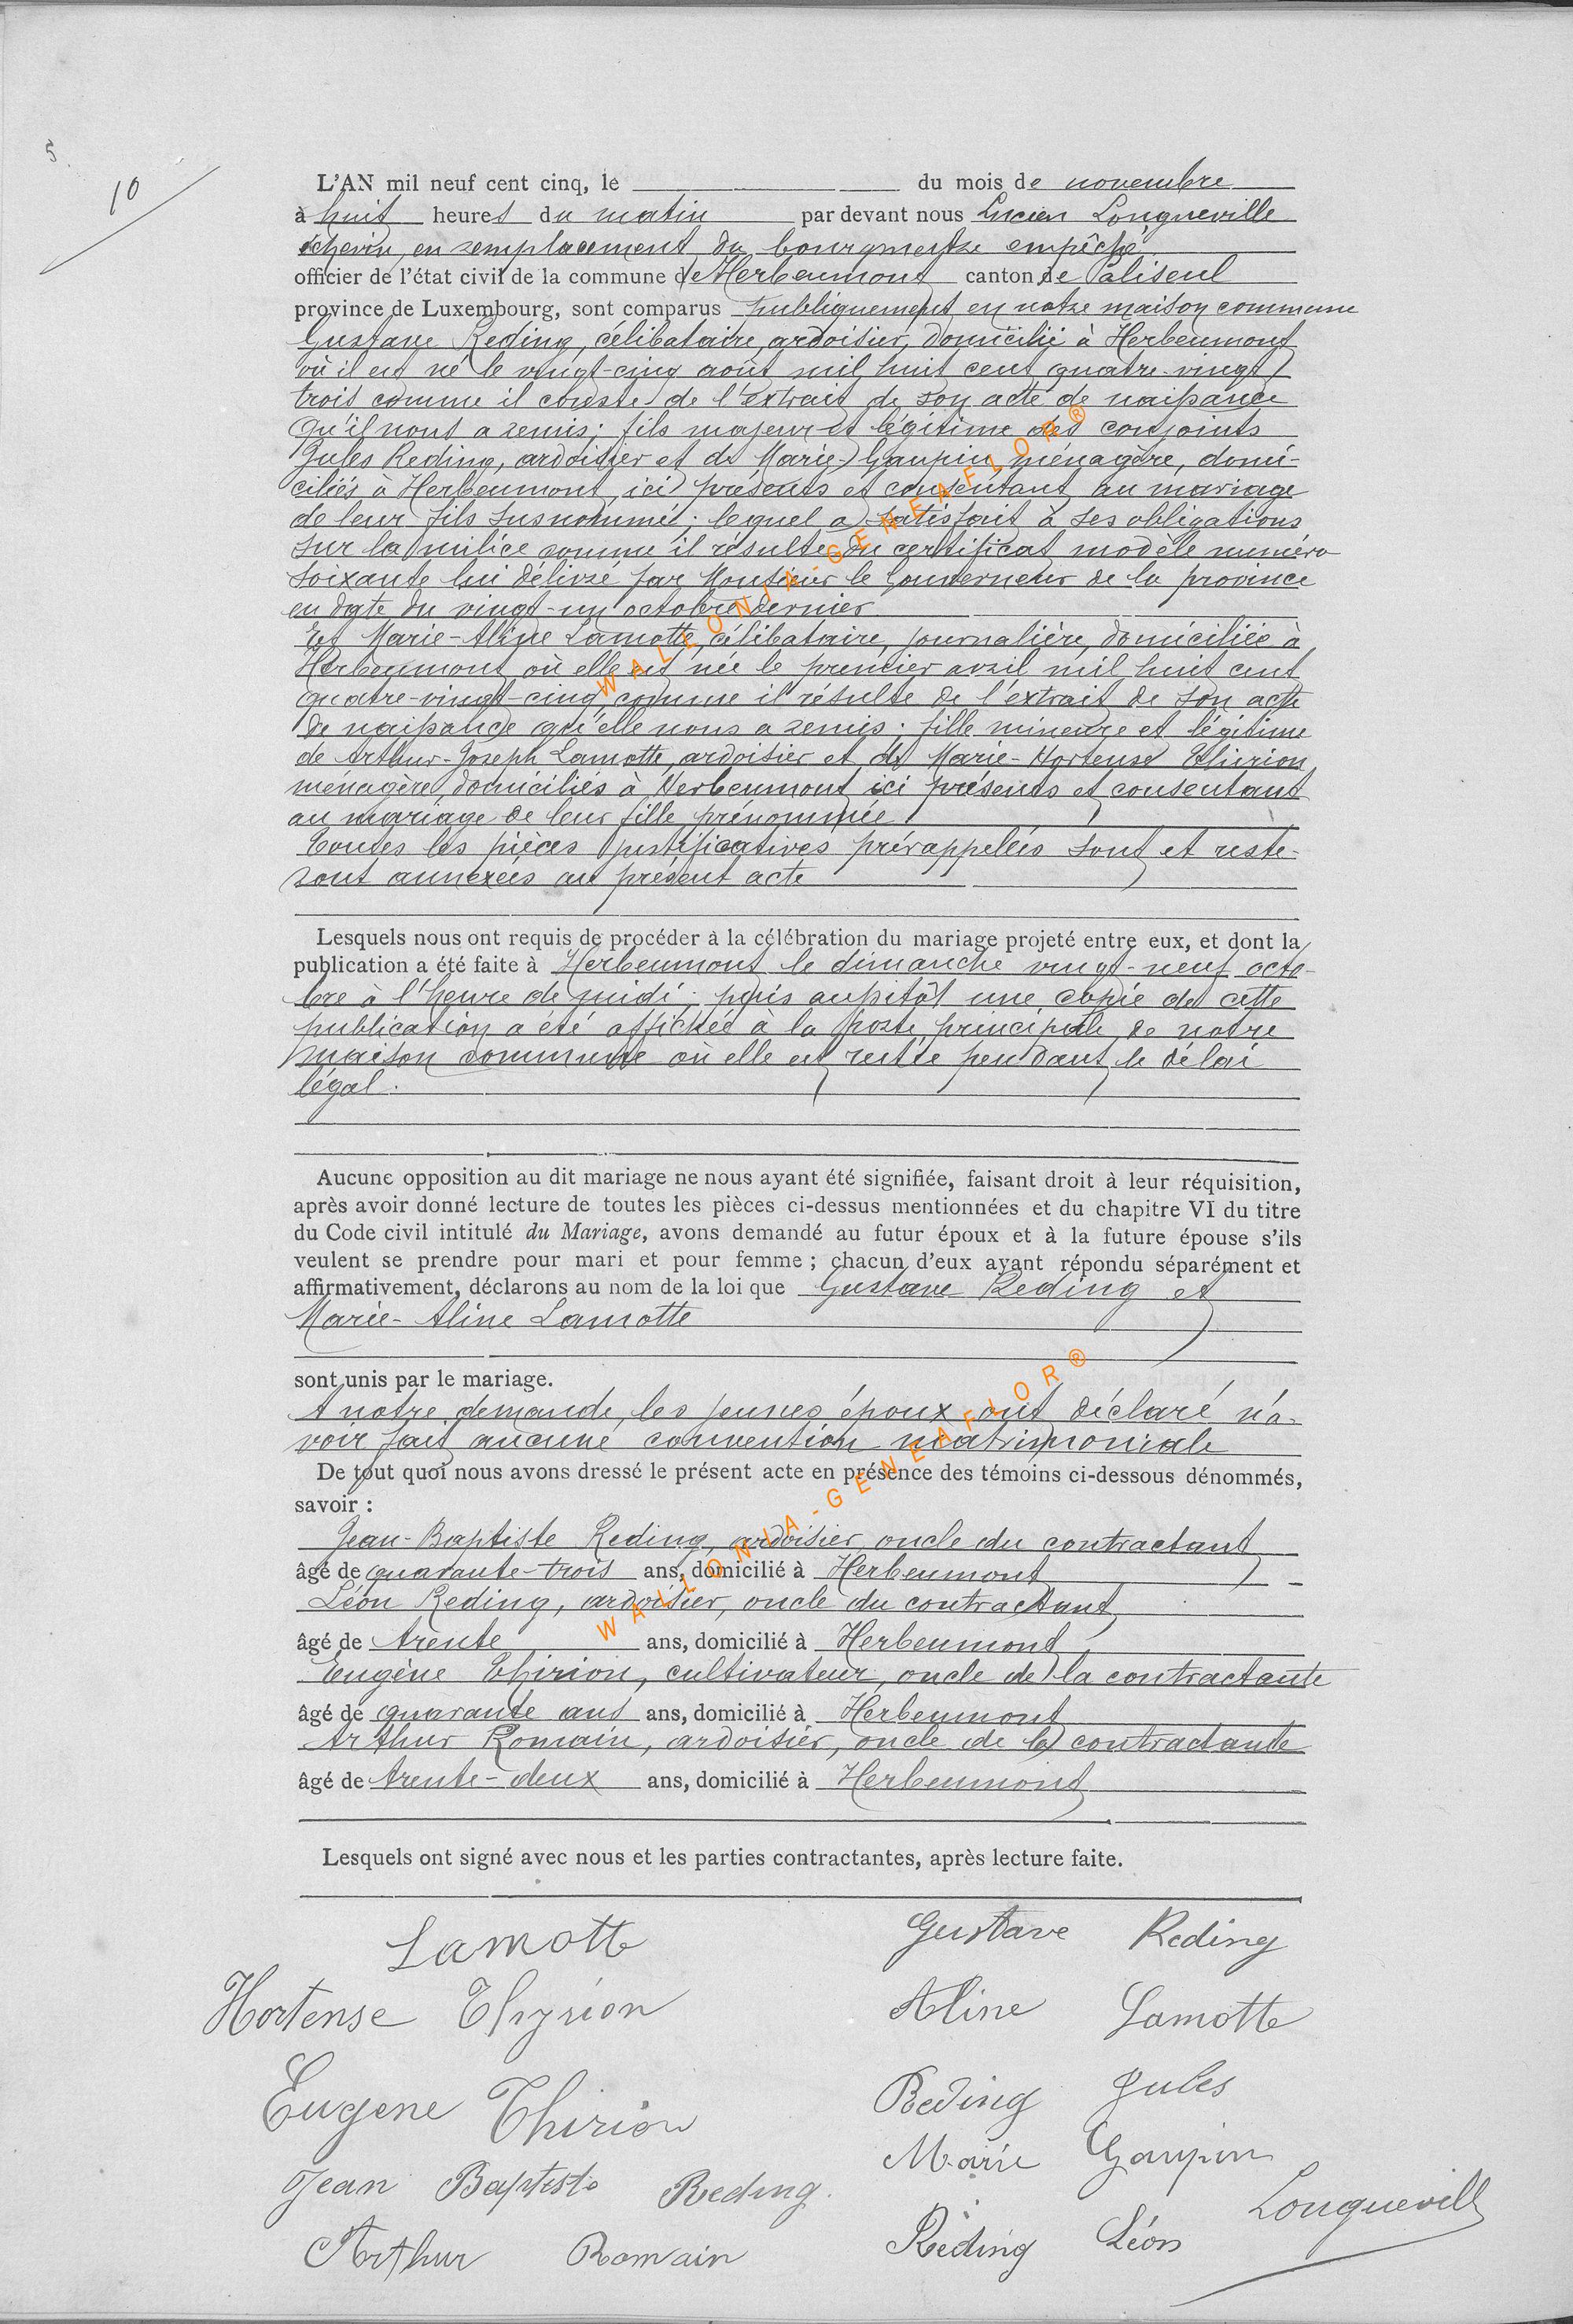 5.
10
L'AN mil neuf cent cinq, le du mois de novembre
à huit heures du matin par devant nous Lucien Longueville
échevin, en remplacement du bourgmestre empêché
officier de l'état civil de la commune de Herbeumont canton de Paliseul
province de Luxembourg, sont comparus publiquement en notre maison commune
Gustave Reding, célibataire, ardoisier, domicilié à Herbeumont
où il est né le vingt-cinq août mil huit cent quatre-vingt
trois comme il conste de l'extrait de son acte de naissance
qu'il nous a remis; fils majeur et légitime des conjoints
Jules Reding, ardoisier et de Marie Gaupin, ménagère, domi-
ciliés à Herbeumont, ici présents et consentant au mariage
de leur fils susnommé; lequel a satisfait à ses obligations
sur la milice comme il résulte du certificat modèle numéro
soixante lui délivré par Monsieur le Gouverneur de la province
en date du vingt-un octobre dernier
Et Marie-Aline Lamotte, célibataire, journalière, domiciliée à
Herbeumont où elle est née le premier avril mil huit cent
quatre-vingt-cinq comme il résulte de l'extrait de son acte
de naissance qu'elle nous a remis; fille mineure et légitime
de Arthur-Joseph Lamotte, ardoisier et de Marie-Hortense Thirion,
ménagère domiciliés à Herbeumont ici présents et consentant
au mariage de leur fille prénommée
Toutes les pièces justificatives prérappelées sont et reste-
ront annexées au présent acte
Lesquels nous ont requis de procéder à la célébration du mariage projeté entre eux, et dont la
publication a été faite à Herbeumont le dimanche vingt-neuf octo-
bre à l'heure de midi; puis aussitôt une copie de cette
publication a été affichée à la porte principale de notre
maison commune où elle est restée pendant le délai
légal.
Aucune opposition au dit mariage ne nous ayant été signifiée, faisant droit à leur réquisition,
après avoir donné lecture de toutes les pièces ci-dessus mentionnées et du chapitre VI du titre
du Code civil intitulé du Mariage, avons demandé au futur époux et à la future épouse s'ils
veulent se prendre pour mari et pour femme ; chacun d'eux ayant répondu séparément et
affirmativement, déclarons au nom de la loi que Gustave Reding et
Marie-Aline Lamotte
sont unis par le mariage.
A notre demande, les jeunes époux ont déclaré n'a-
voir fait aucune convention matrimoniale
De tout quoi nous avons dressé le présent acte en présence des témoins ci-dessous dénommés,
savoir :
Jean-Baptiste Reding, ardoisier, oncle du contractant
âgé de quarante-trois ans, domicilié à Herbeumont
Léon Reding, ardoisier, oncle du contractant,
âgé de trente ans, domicilié à Herbeumont
Eugène Thirion, cultivateur, oncle de la contractante
âgé de quarante ans ans, domicilié à Herbeumont
Arthur Romain, ardoisier, oncle de la contractante
âgé de trente-deux ans, domicilié à Herbeumont
Lesquels ont signé avec nous et les parties contractantes, après lecture faite.
Lamotte Gustave Reding
Hortense Thyrion Aline Lamotte
Eugene Thirion Reding Jules
Marie Gaupin
Jean Baptiste Reding. Longueville
Arthur Romain Reding Léon
WALLONIA-GENEAFLOR®
WALLONIA-GENEAFLOR®